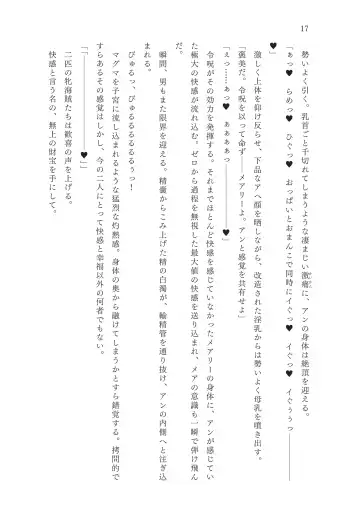 17
勢いよく引く。乳首ごと千切れてしまうような凄まじい激痛に、アンの身体は絶頂を迎える。
「ぁっ♥ らめっ♥ ひぐっ♥ おっぱいとおまんこで同時にイぐっ♥ イぐっ♥ イぐぅぅっ――――
♥」
激しく上体を仰け反らせ、下品なアヘ顔を晒しながら、改造された淫乳からは勢いよく母乳を噴き出す。
「褒美だ。令呪を以って命ず――メアリーよ。アンと感覚を共有せよ」
「ぇっ……ぁっ♥ ああああっ――――――♥」
令呪がその効力を発揮する。それまでほとんど快感を感じていなかったメアリーの身体に、アンが感じてい
た極大の快感が流れ込む。ゼロから過程を無視した最大値の快感を送り込まれ、メアの意識も一瞬で弾け飛ん
だ。
瞬間、男もまた限界を迎える。精嚢からこみ上げた精の白濁が、輸精管を通り抜け、アンの内側へと注ぎ込
まれる。
びゅるっ、びゅるるるるるるるぅっ！
マグマを子宮に流し込まれるような猛烈な灼熱感。身体の奥から融けてしまうかとすら錯覚する。拷問的で
すらあるその感覚はしかし、今の二人にとって快感と幸福以外の何者でもない。
「「――――――――♥」」
二匹の牝海賊たちは歓喜の声を上げる。
快感と言う名の、無上の財宝を手にして。